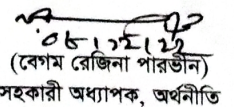 (বেগম রেজিনা পারভীন)
সহকারী অধ্যাপক, অর্থনীতি